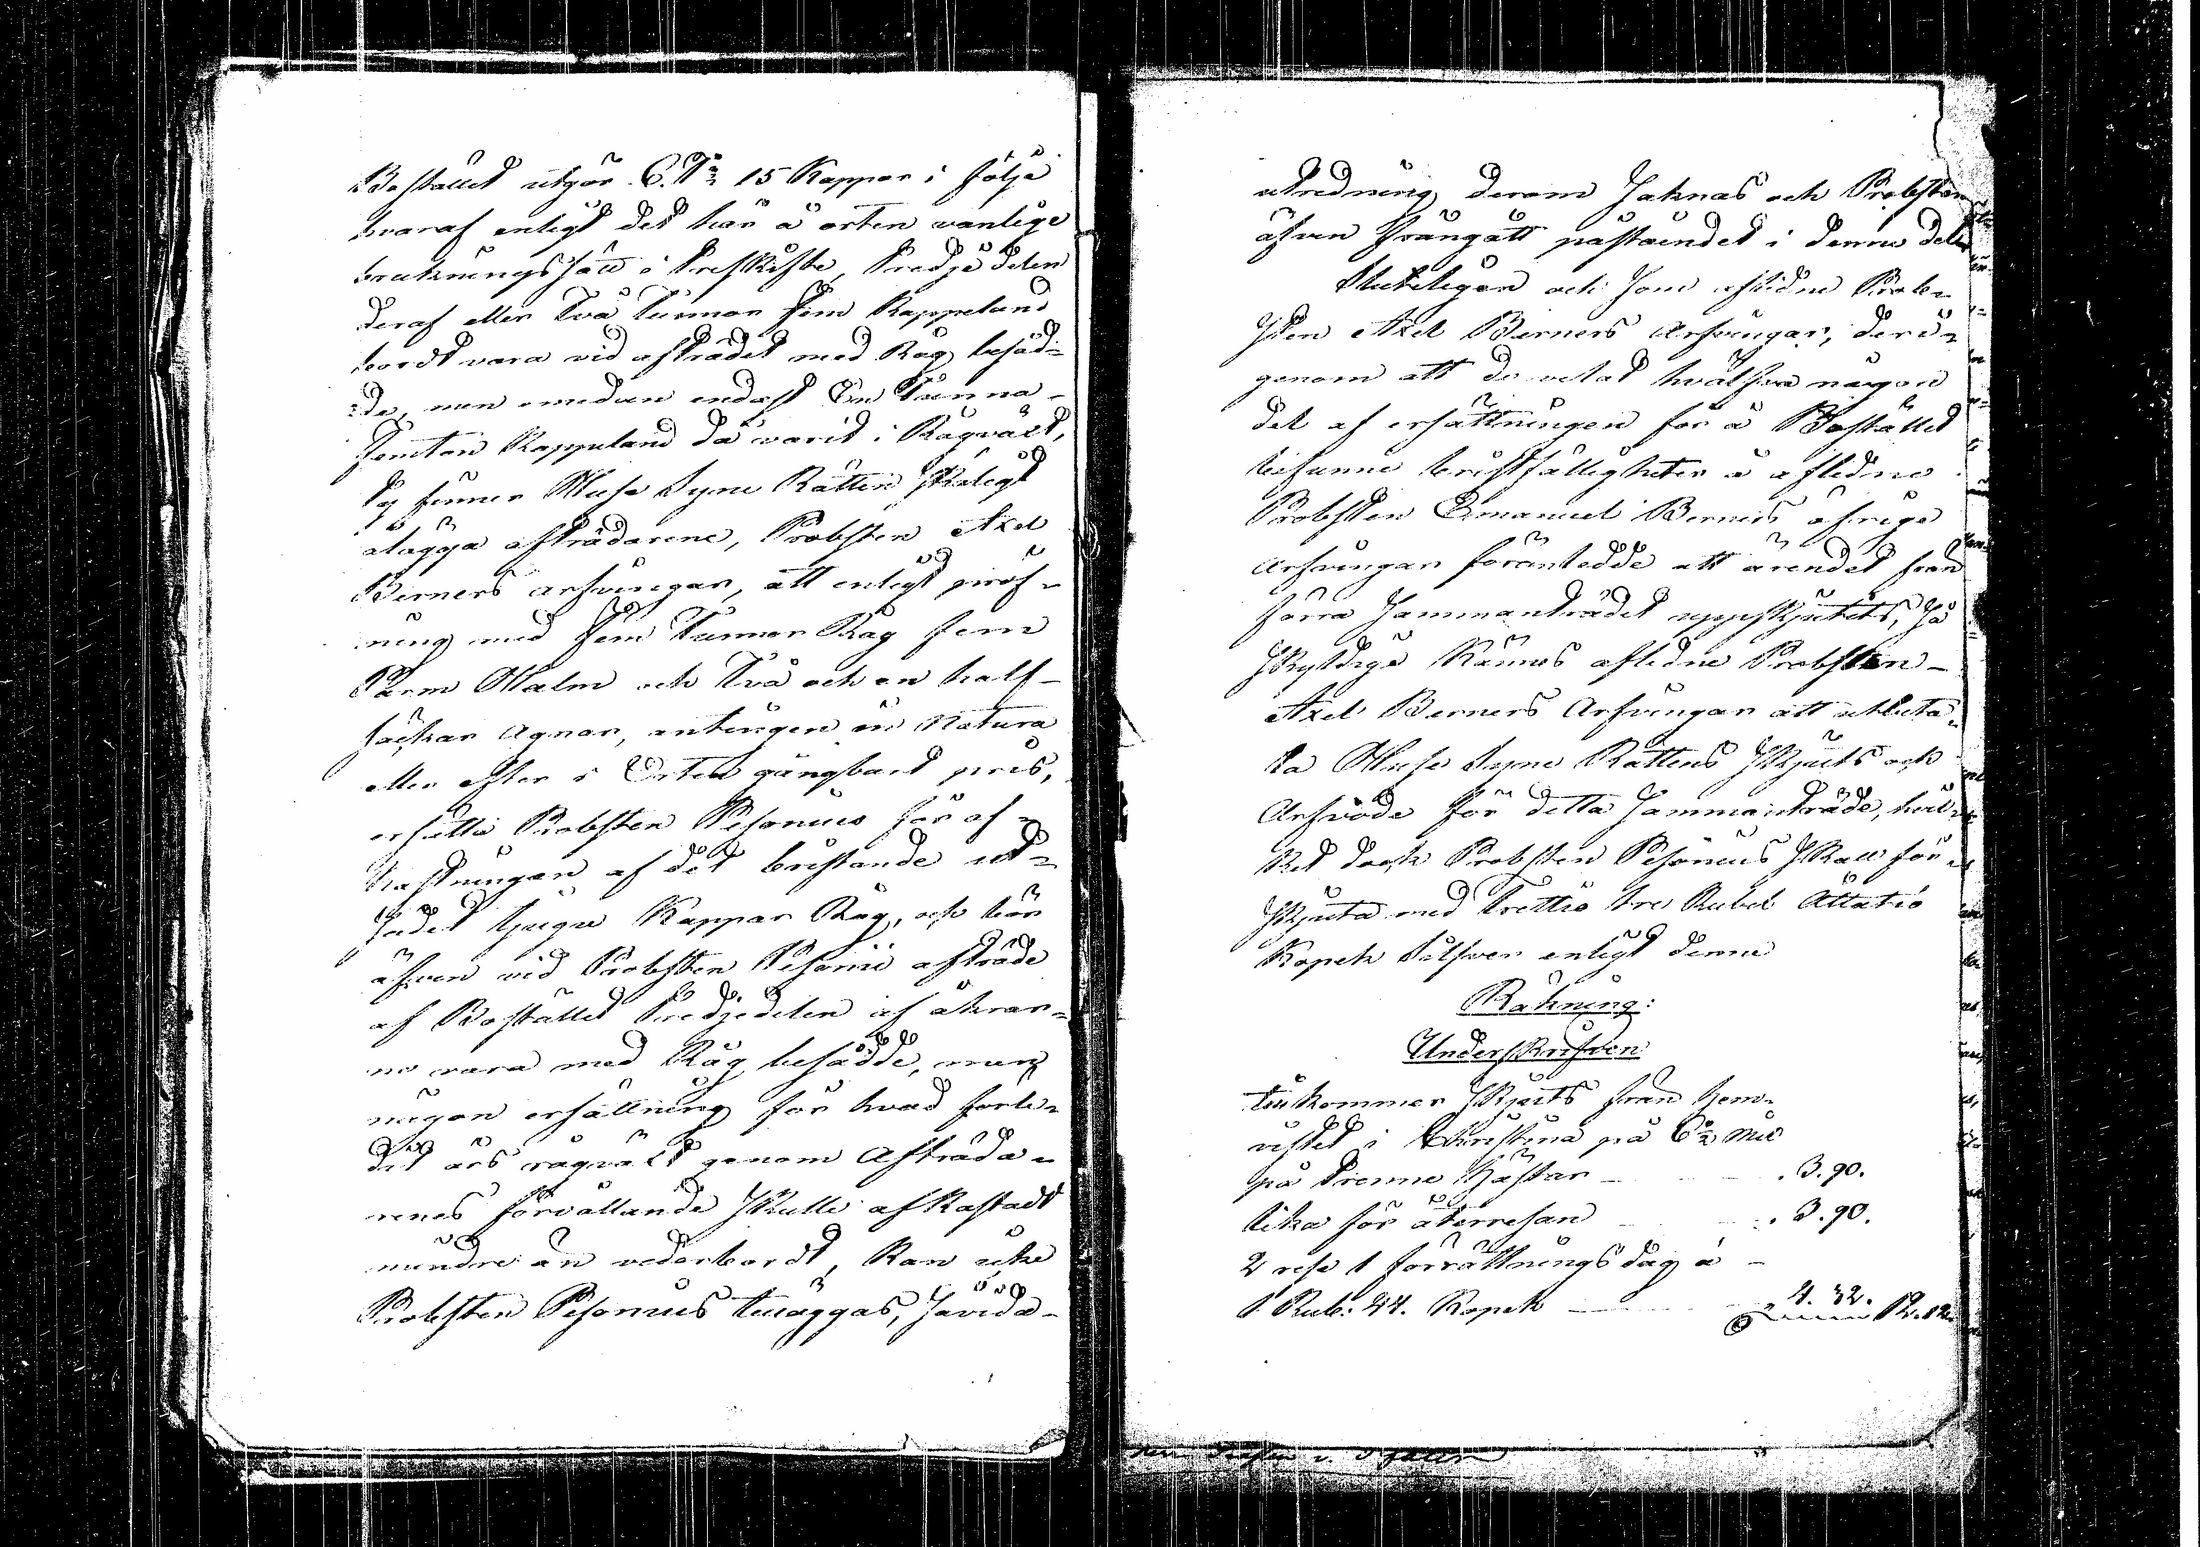 Bostället utgör 6. Tr 15 Kappor i följe
hvaraf enligt det här å orten vanlige
brukningssätt i Treskifte, Tredjedelen
deraf eller Två Tunnor fem Kappeland
bordt vara vid afträdet med Råg besåd¬
de, men emedan endast En Tunna
femton Kappeland då varit i Rågvält,
Ty finner Husesyne Rätten skäligt
ålägga afträdarene, Probsten Axel
Berners arfvingar, att enligt pröf¬
ning med fem Tunnor Råg fem
Parm Halm och Två och en half
säckar Agnar, antingen in Natura
eller efter i Orten gångbart pris,
ersätta Probsten Pesonius för af¬
kastningen af det bristande ut¬
sädet tjugu Kappar Råg, och bör
äfven vid Probsten Pesonii afträde
af Bostället Tredjedelen af åkrar¬
ne vara med Råg besådde, men
någon ersättning för hvad förli¬
dit års rågvält genom Afträda¬
renes förvållande skulle afkastadt
mindre än vederbordt, kan icke
Probsten Pesonius tilläggas, såvida
utredning derom saknas och Probsten
äfven frångått påståendet i denne del
Slutligen och som aflidne Prob¬
sten Axel Berners Arfvingar, deri¬
genom att de velat hvälfva någon
del af ersättningen för å Bostället
befunne bristfälligheter å aflidne
Probsten Emanuel Berners öfrige
Arfvingar föranledde att ärendet från
förra Sammanträdet uppskjutits, så
skyldige kännes aflidne Probsten
Axel Berners Arfvingar att utbeta¬
la Husesyne Rättens skjuts och
Arfvode för detta Sammanträde, hvil¬
ket dock Probsten Pesonius skall för¬
skjuta med Trettio tre Rubel Åttatio
Kopek Silfver enligt denne
Räkning:
Underskrifven
tillkommer skjuts från hem¬
vistet i Christina på 6½ mil
på Trenne Hästar . 3. 90.
lika för återresan . 3. 90.
2 rese 1 förrättningsdag à
1 Rub: 44. Kopek 4. 32. 12. 12.